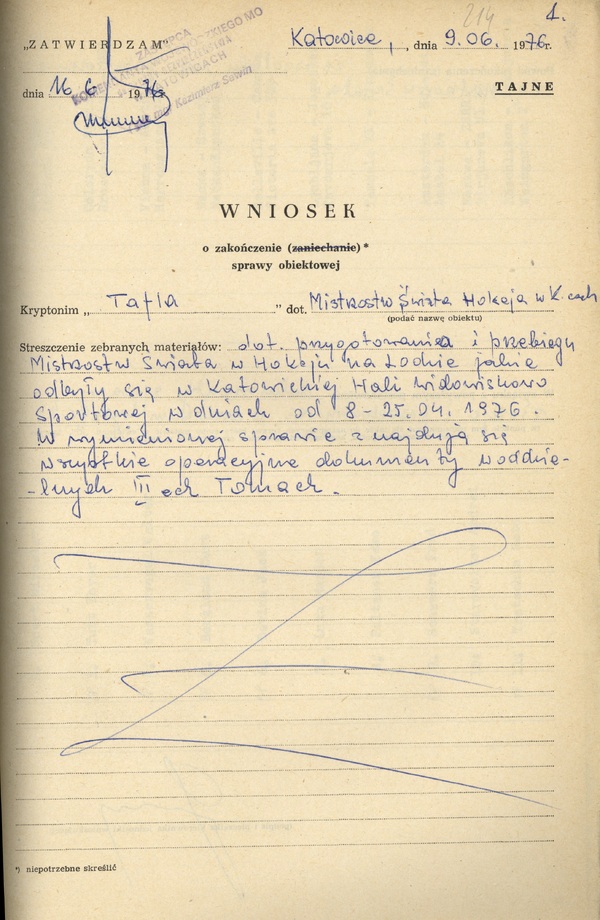 214 1.
„ZATWIERDZAM” Katowice, dnia 9.06. 1976 r.
ZASTĘPCA
KATOWICACH
mgr Kazimierz
dnia 16 6 1976
TAJNE
WNIOSEK
o zakończenie (zaniechanie)*
sprawy obiektowej
Kryptonim „ Tafla ” dot. Mistrzostw Świata Hokeja w K-cach
(podać nazwę obiektu)
Streszczenie zebranych materiałów: dot. przygotowania i przebiegu
Mistrzostw Świata w Hokeju na Lodzie jakie
odbyły się w Katowickiej Hali Widowiskowo
Sportowej w dniach od 8 - 25.04. 1976.
W wymienionej sprawie znajdują się
wszystkie operacyjne dokumenty w oddzie-
-lnych III ech Tomach.
*) niepotrzebne skreślić